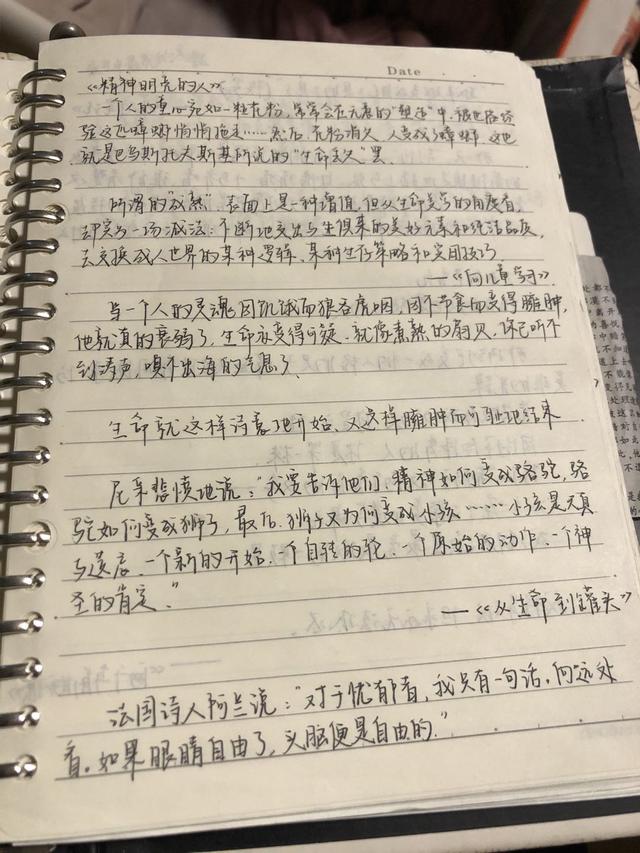 Date
《精神明亮的人》
一个人的童心宛如一粒花粉,常常会在无意的"塑造"中,被世故经
验这匹蟑螂悄悄拖走……然后,花粉消失,人变成了蟑螂。这也
就是巴乌斯托夫斯基所说的"生命丢失"罢.
所谓的"成熟",表面上是一种增值,但从生命美学的角度看,
却实为一场减法:不断地交出与生俱来的美好元素和纯洁品质,
去交换成人世界的某种逻辑、某种生存策略和实用技巧.
——《向儿童学习》.
当一个人的灵魂因饥饿而狼吞虎咽,因不节食而变得臃肿,
他就真的衰弱了,生命亦变得可疑.就像煮熟的扇贝,你已听不
到涛声,嗅不出海的气息了.
生命就这样诗意地开始、又这样臃肿而可耻地结束
尼采悲愤地说:"我要告诉他们,精神如何变成骆驼,骆
驼如何变成狮子,最后,狮子又为何变成小孩……小孩是天真
与遗忘、一个新的开始、一个自转的轮、一个原始的动作、一个神
圣的肯定."
——《从生命到罐头》
法国诗人阿兰说:"对于忧郁者,我只有一句话,向远处
看。如果眼睛自由了,头脑便是自由的."